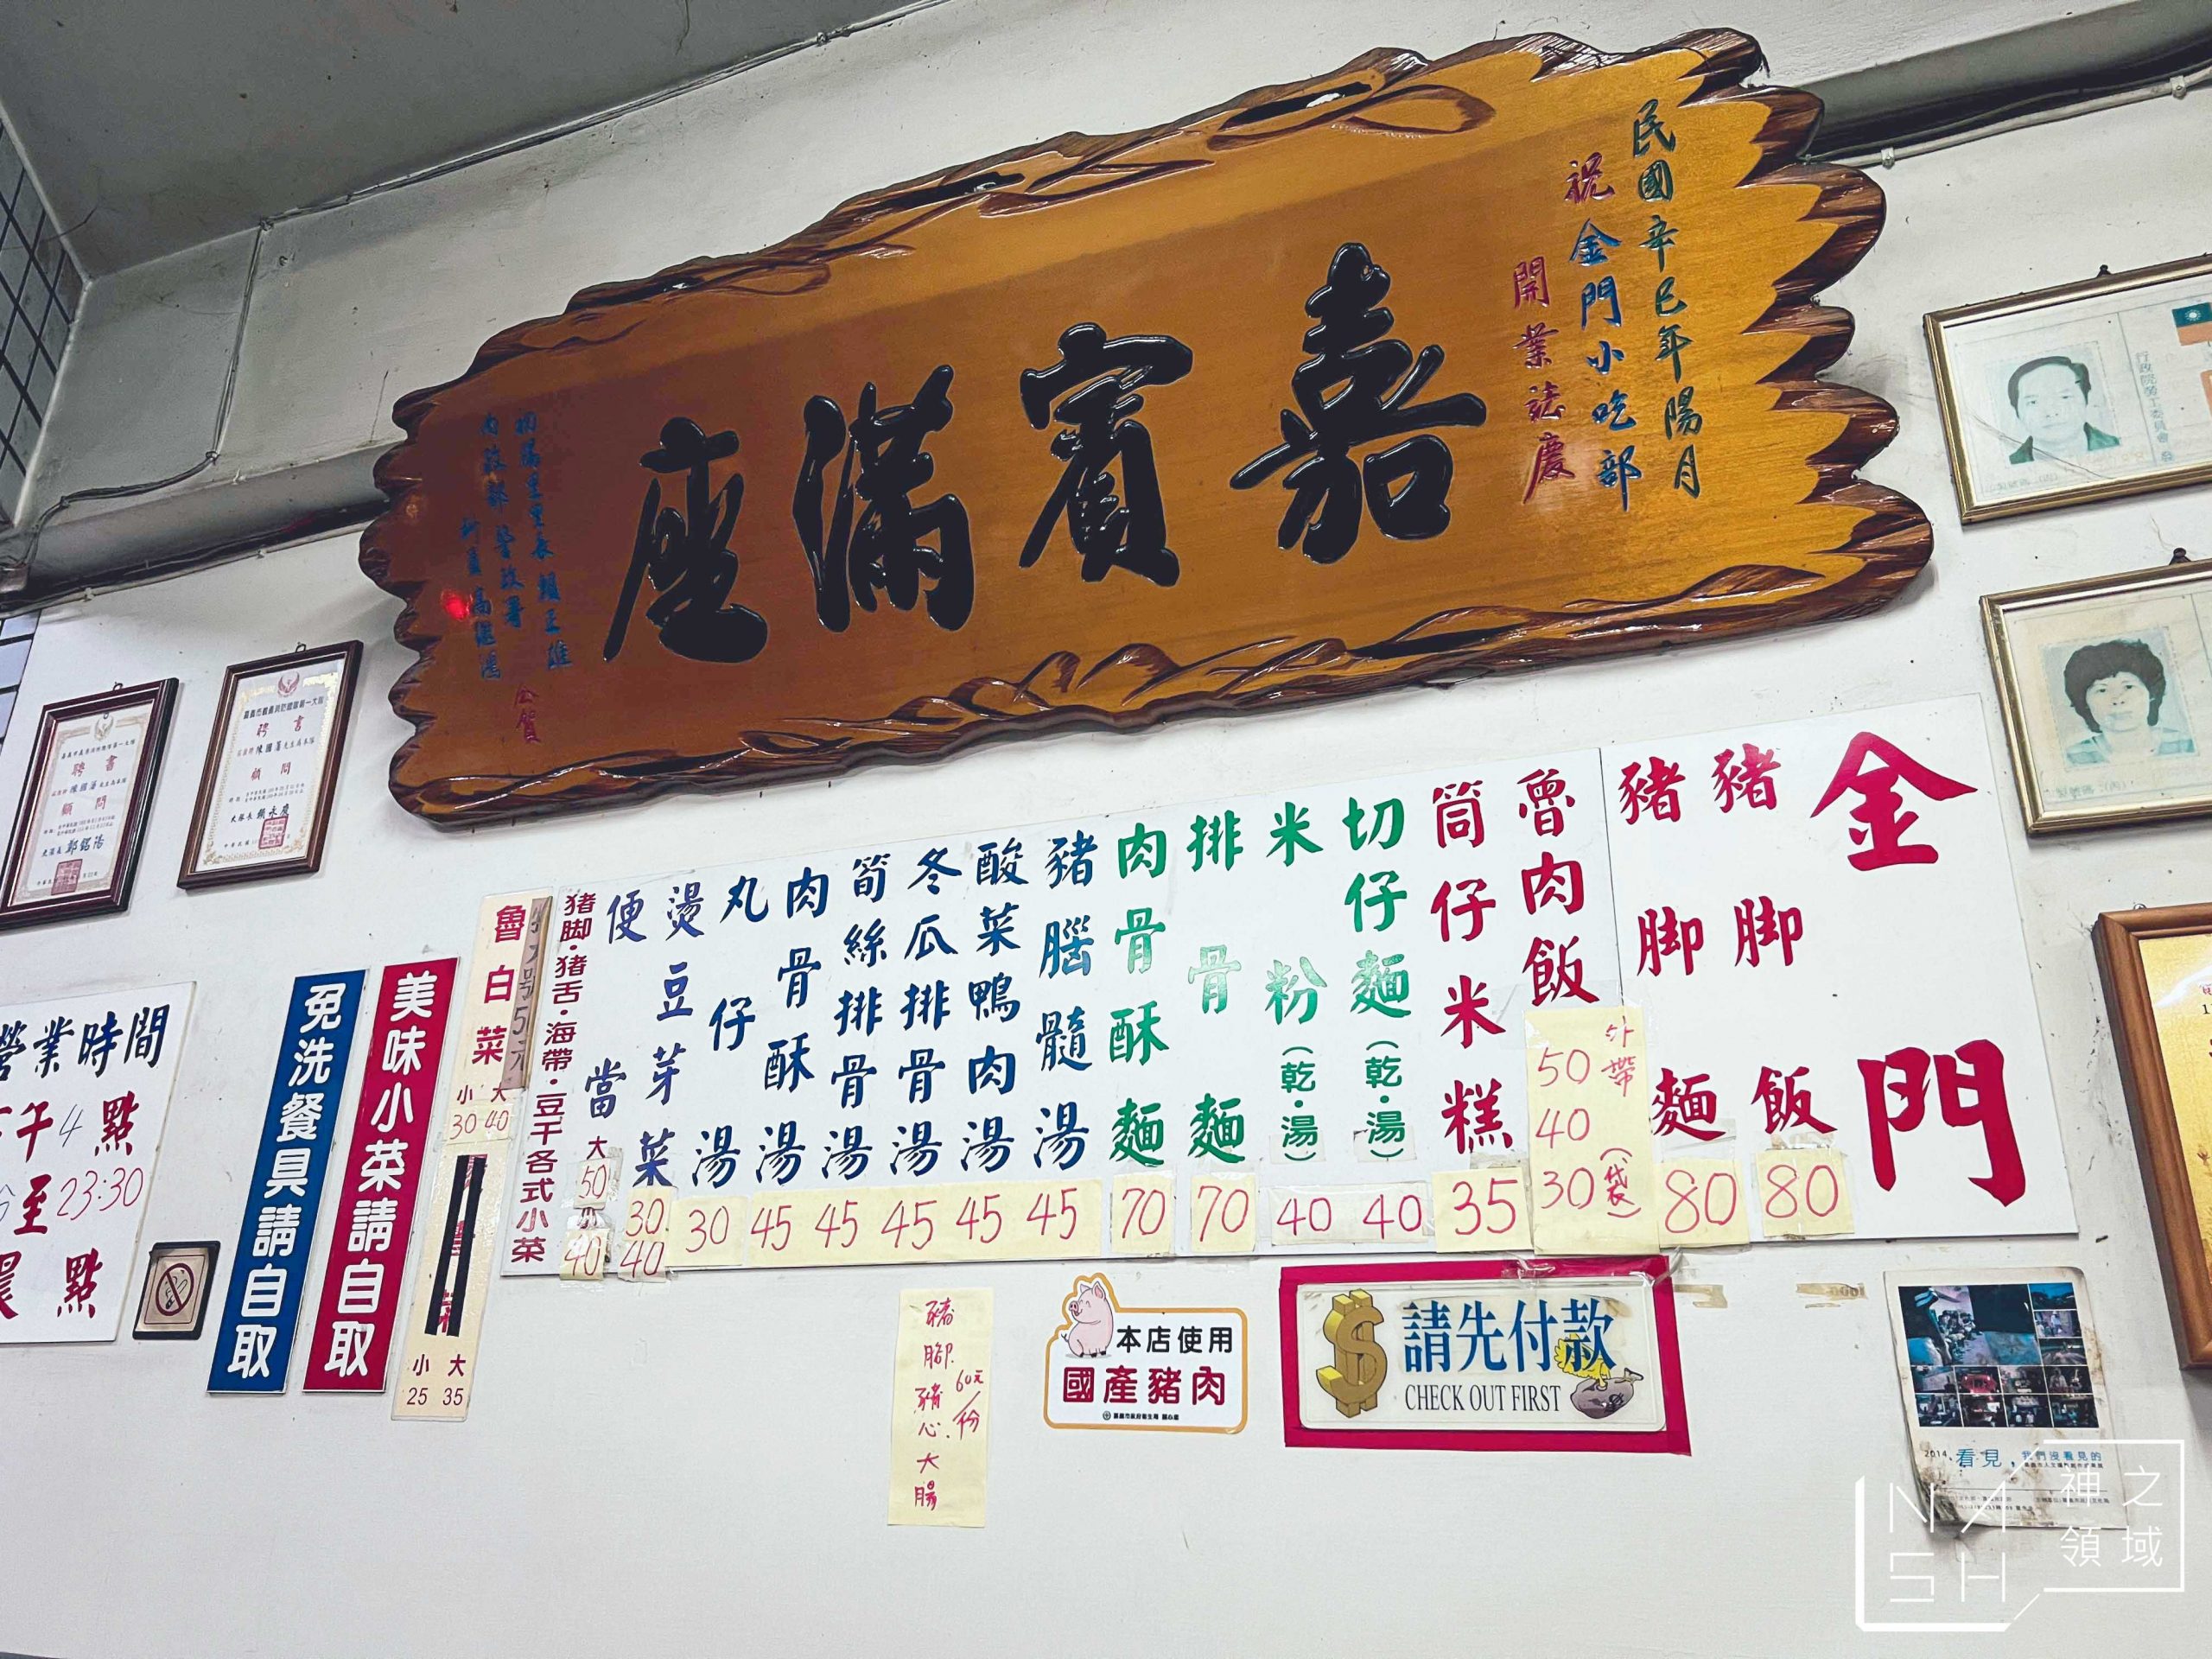 嘉賓滿座
民國辛巳年陽月
祝金門小吃部
開業誌慶
仝賀
金門
豬腳飯 80
豬腳麵 80
魯肉飯
50
40
30
外帶(袋)
筒仔米糕 35
切仔麵(乾·湯) 40
米粉(乾·湯) 40
排骨麵 70
肉骨酥麵 70
豬腦髓湯 45
酸菜鴨肉湯 45
冬瓜排骨湯 45
筍絲排骨湯 45
肉骨酥湯 45
丸仔湯 30
燙豆芽菜 30. 40
便當 大 50 小 40
豬脚·豬舌·海帶·豆干各式小菜
魯白菜
小 大
30 40
小 大
25 35
美味小菜請自取
免洗餐具請自取
營業時間
午4點
至23:30
點
聘書
顧問
大隊長 鄭銘浩
聘書
顧問
大隊長 賴永慶
豬腳.豬心.大腸
60元/份
本店使用
國產豬肉
請先付款
CHECK OUT FIRST
2014,看見,我們沒看見的
行政院勞工委員會
NASH
神之領域